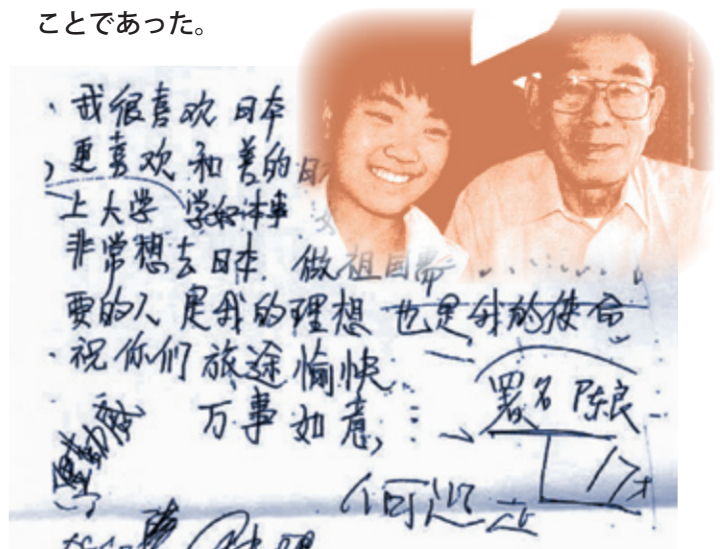 ことであった。
我很喜欢 日本
更喜欢 和善的日
上大学 学好本事
非常想去日本. 做祖国需
要的人 是我的理想 也是我的使命
祝你们 旅途愉快.
万事如意,
署名 陈良
17才